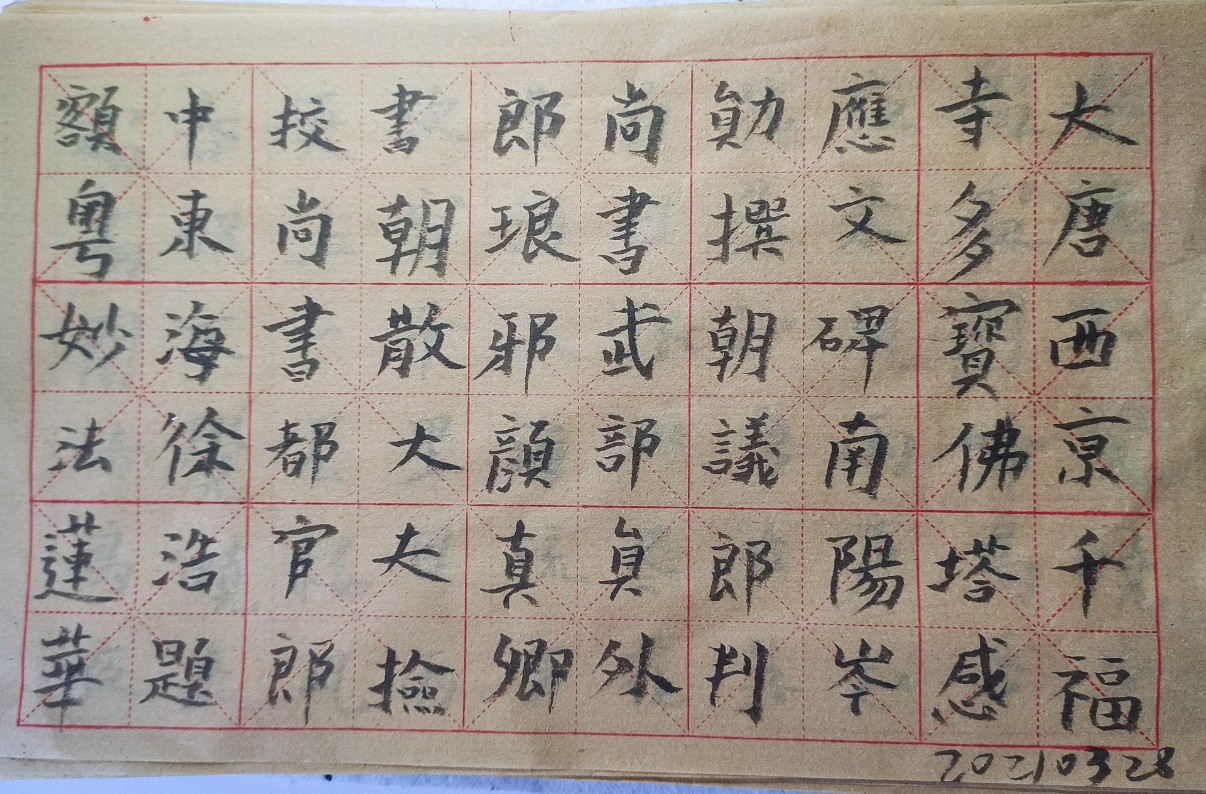 大唐西京千福
寺多寶佛塔感
應文碑南陽岑
勛撰朝議郎判
尚書武部員外
郎琅邪顏真卿
書朝散大夫撿
校尚書都官郎
中東海徐浩題
額粵妙法蓮華
20210328